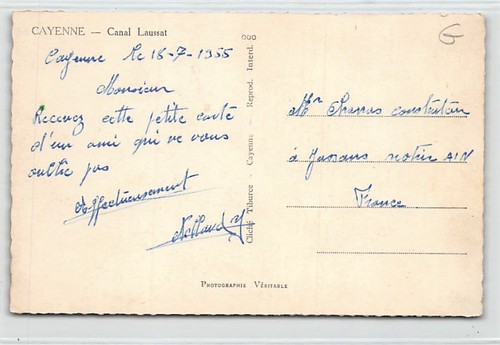 CAYENNE — Canal Laussat
Cayenne le 18-7-1955
Monsieur
Recevez cette petite carte
d'un ami qui ne vous
oublie pas
Affectueusement
Cliché Tiburce - Cayenne - Reprod. Interd.
Mr
à Jassans AIN
France
PHOTOGRAPHIE VÉRITABLE
G